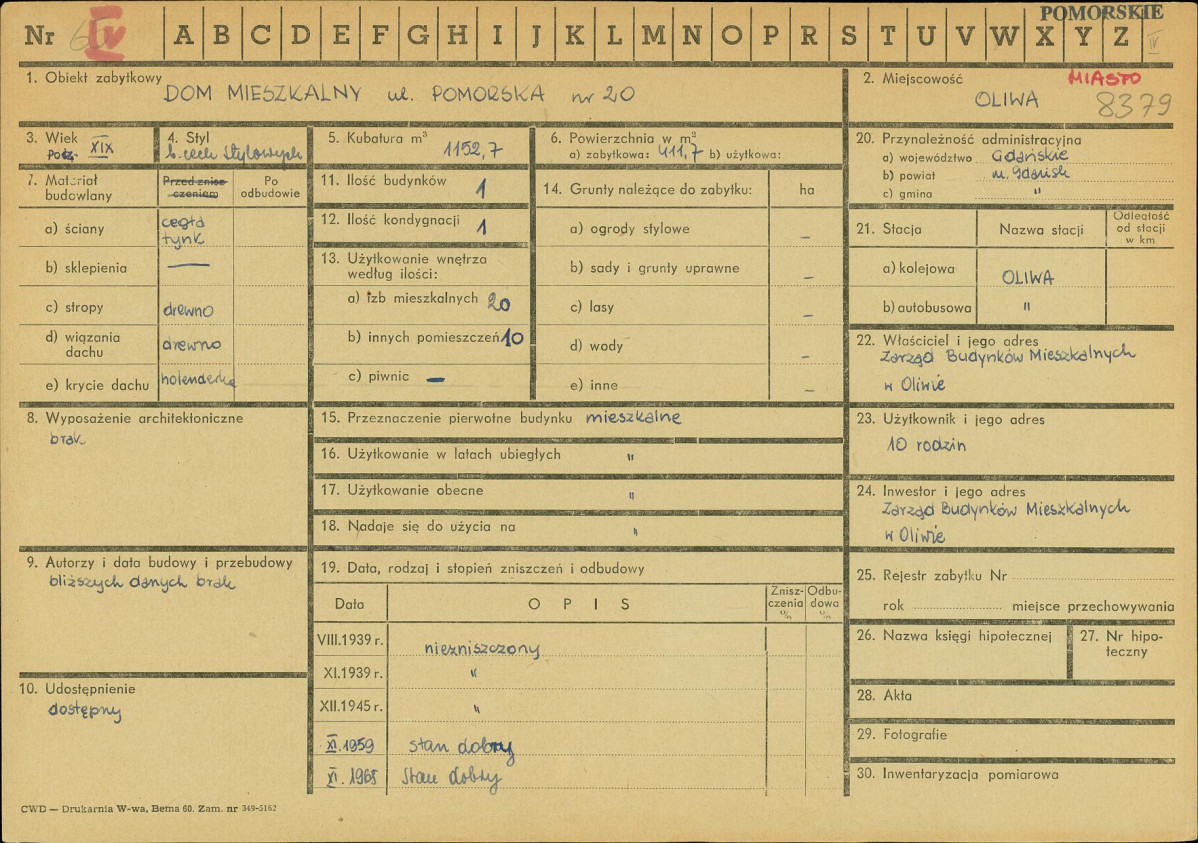 POMORSKIE
Nr IV A B C D E F G H I J K L M N O P R S T U V W X Y Z IV
1. Obiekt zabytkowy
DOM MIESZKALNY ul. POMORSKA nr 20
2. Miejscowość MIASTO
OLIWA 8379
3. Wiek
Pocz. XIX
4. Styl
b. cech stylowych
5. Kubatura m³
1152,7
6. Powierzchnia w m²
a) zabytkowa: 411,7 b) użytkowa:
7. Materiał budowlany
Przed znisz-
czeniem
Po
odbudowie
a) ściany cegła
tynk
b) sklepienia —
c) stropy drewno
d) wiązania
dachu drewno
e) krycie dachu holenderka
8. Wyposażenie architektoniczne
brak
9. Autorzy i data budowy i przebudowy
bliższych danych brak
10. Udostępnienie
dostępny
11. Ilość budynków 1
12. Ilość kondygnacji 1
13. Użytkowanie wnętrza
według ilości:
a) izb mieszkalnych 20
b) innych pomieszczeń 10
c) piwnic —
14. Grunty należące do zabytku: ha
a) ogrody stylowe –
b) sady i grunty uprawne –
c) lasy –
d) wody –
e) inne –
15. Przeznaczenie pierwotne budynku mieszkalne
16. Użytkowanie w latach ubiegłych "
17. Użytkowanie obecne "
18. Nadaje się do użycia na "
19. Data, rodzaj i stopień zniszczeń i odbudowy
Data OPIS
Znisz-
czenia
%
Odbu-
dowa
%
VIII.1939 r. niezniszczony
XI.1939 r. "
XII.1945 r. "
XI.1959 stan dobry
XI.1965 stan dobry
20. Przynależność administracyjna
a) województwo Gdańskie
b) powiat m. Gdańsk
c) gmina "
21. Stacja Nazwa stacji
Odległość
od stacji
w km
a) kolejowa OLIWA
b) autobusowa "
22. Właściciel i jego adres
Zarząd Budynków Mieszkalnych
w Oliwie
23. Użytkownik i jego adres
10 rodzin
24. Inwestor i jego adres
Zarząd Budynków Mieszkalnych
w Oliwie
25. Rejestr zabytku Nr
rok miejsce przechowywania
26. Nazwa księgi hipotecznej
27. Nr hipo-
teczny
28. Akta
29. Fotografie
30. Inwentaryzacja pomiarowa
CWD — Drukarnia W-wa, Bema 60. Zam. nr 349-5162